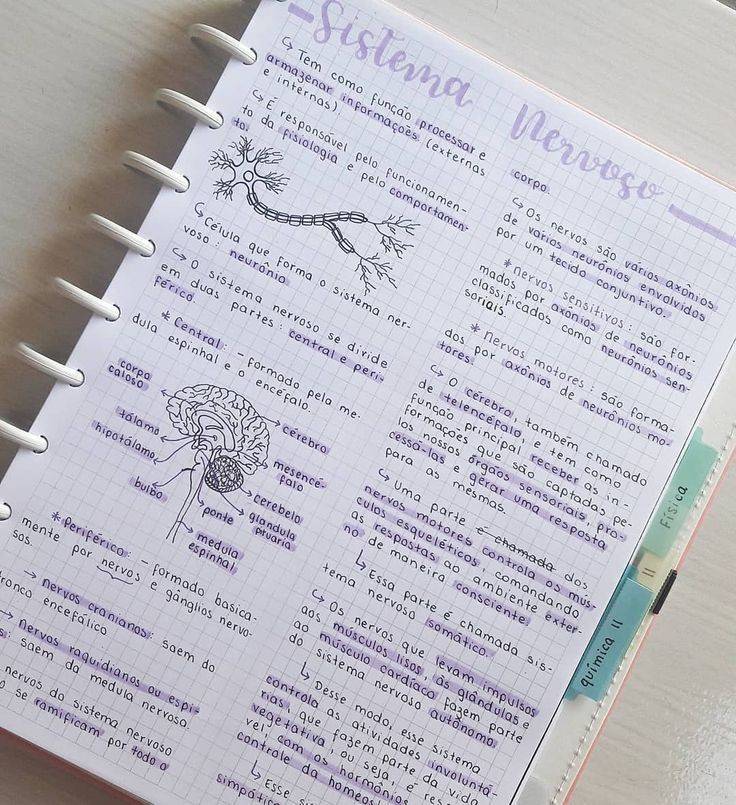 Sistema Nervoso
↳ Tem como função processar e
armazenar informações (externas
e internas).
↳ É responsável pelo funcionamen-
to da fisiologia e pelo comportamen-
to.
↳ Célula que forma o sistema ner-
voso: neurônio.
↳ O sistema nervoso se divide
em duas partes: central e peri-
férico.
* Central: - formado pela me-
dula espinhal e o encéfalo.
corpo
caloso
tálamo
hipotálamo
bulbo
ponte
medula
espinhal
cérebro
mesencé-
falo
cerebelo
glândula
pituária
* Periférico: - formado basica-
mente por nervos e gânglios nervo-
sos.
→ nervos cranianos: saem do
tronco encefálico
→ nervos raquidianos ou espi-
saem da medula nervosa.
nervos do sistema nervoso
o se ramificam por todo o
corpo.
↳ Os nervos são vários axônios
de vários neurônios envolvidos
por um tecido conjuntivo.
* nervos sensitivos: são for-
mados por axônios de neurônios
classificados como neurônios sen-
soriais.
* nervos motores: são forma-
dos por axônios de neurônios mo-
tores.
↳ O cérebro, também chamado
de telencéfalo, e tem como
função principal receber as in-
formações que são captadas pe-
los nossos órgãos sensoriais, pro-
cessá-las e gerar uma resposta
para as mesmas.
↳ Uma parte é chamada dos
nervos motores controla os mús-
culos esqueléticos, comandando
as respostas ao ambiente exter-
no de maneira consciente.
↳ Essa parte é chamada sis-
tema nervoso somático.
↳ Os nervos que levam impulsos
aos músculos lisos, às glândulas e
ao músculo cardíaco fazem parte
do sistema nervoso autônomo.
↳ Desse modo, esse sistema
controla as atividades involuntá-
rias, que fazem parte da vida
vegetativa, ou seja, é
vel, com os hormônios
controle da
↳ Esse
simpático
Física
II
química II